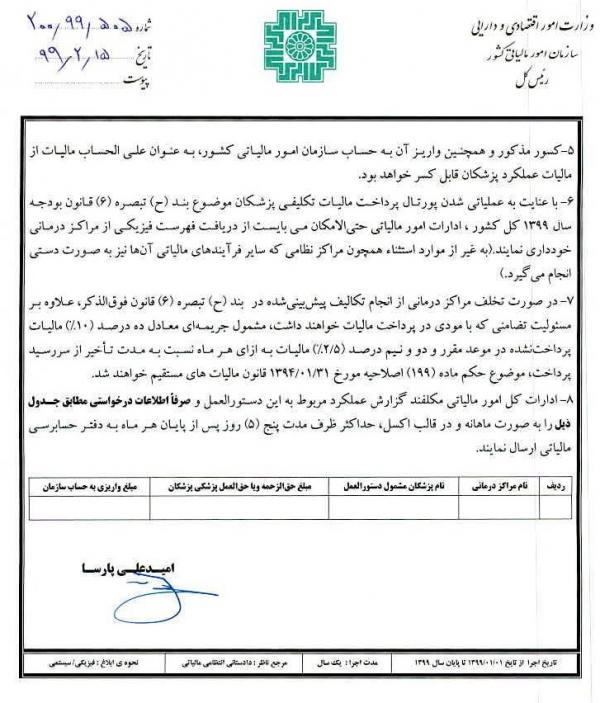 وزارت امور اقتصادی و دارایی
سازمان امور مالیاتی کشور
رئیس کل
شماره ۲۰۰/۹۹/۵۰۵
تاریخ ۹۹/۲/۱۵
پیوست
۵-کسور مذکور و همچنین واریز آن به حساب سازمان امور مالیاتی کشور، به عنوان علی الحساب مالیات از
مالیات عملکرد پزشکان قابل کسر خواهد بود.
۶- با عنایت به عملیاتی شدن پورتال پرداخت مالیات تکلیفی پزشکان موضوع بند (ح) تبصره (۶) قانون بودجه
سال ۱۳۹۹ کل کشور ، ادارات امور مالیاتی حتی‌الامکان می بایست از دریافت فهرست فیزیکی از مراکز درمانی
خودداری نمایند.(به غیر از موارد استثناء همچون مراکز نظامی که سایر فرآیندهای مالیاتی آن‌ها نیز به صورت دستی
انجام می‌گیرد.)
۷- در صورت تخلف مراکز درمانی از انجام تکالیف پیش‌بینی‌شده در بند (ح) تبصره (۶) قانون فوق‌الذکر، علاوه بر
مسئولیت تضامنی که با مودی در پرداخت مالیات خواهند داشت، مشمول جریمه‌ای معادل ده درصد (۱۰٪) مالیات
پرداخت‌نشده در موعد مقرر و دو و نیم درصد (۲/۵٪) مالیات به ازای هر ماه نسبت به مدت تأخیر از سررسید
پرداخت، موضوع حکم ماده (۱۹۹) اصلاحیه مورخ ۱۳۹۴/۰۱/۳۱ قانون مالیات های مستقیم خواهند شد.
۸- ادارات کل امور مالیاتی مکلفند گزارش عملکرد مربوط به این دستورالعمل و صرفاً اطلاعات درخواستی مطابق جدول
ذیل را به صورت ماهانه و در قالب اکسل، حداکثر ظرف مدت پنج (۵) روز پس از پایان هر ماه به دفتر حسابرسی
مالیاتی ارسال نمایند.
ردیف نام مراکز درمانی نام پزشکان مشمول دستورالعمل مبلغ حق‌الزحمه ویا حق‌العمل پزشکی پزشکان مبلغ واریزی به حساب سازمان
امیدعلی پارسا
تاریخ اجرا از تایخ ۱۳۹۹/۰۱/۰۱ تا پایان سال ۱۳۹۹ مدت اجرا : یک سال مرجع ناظر : دادستانی انتظامی مالیاتی نحوه ی ابلاغ : فیزیکی/سیستمی